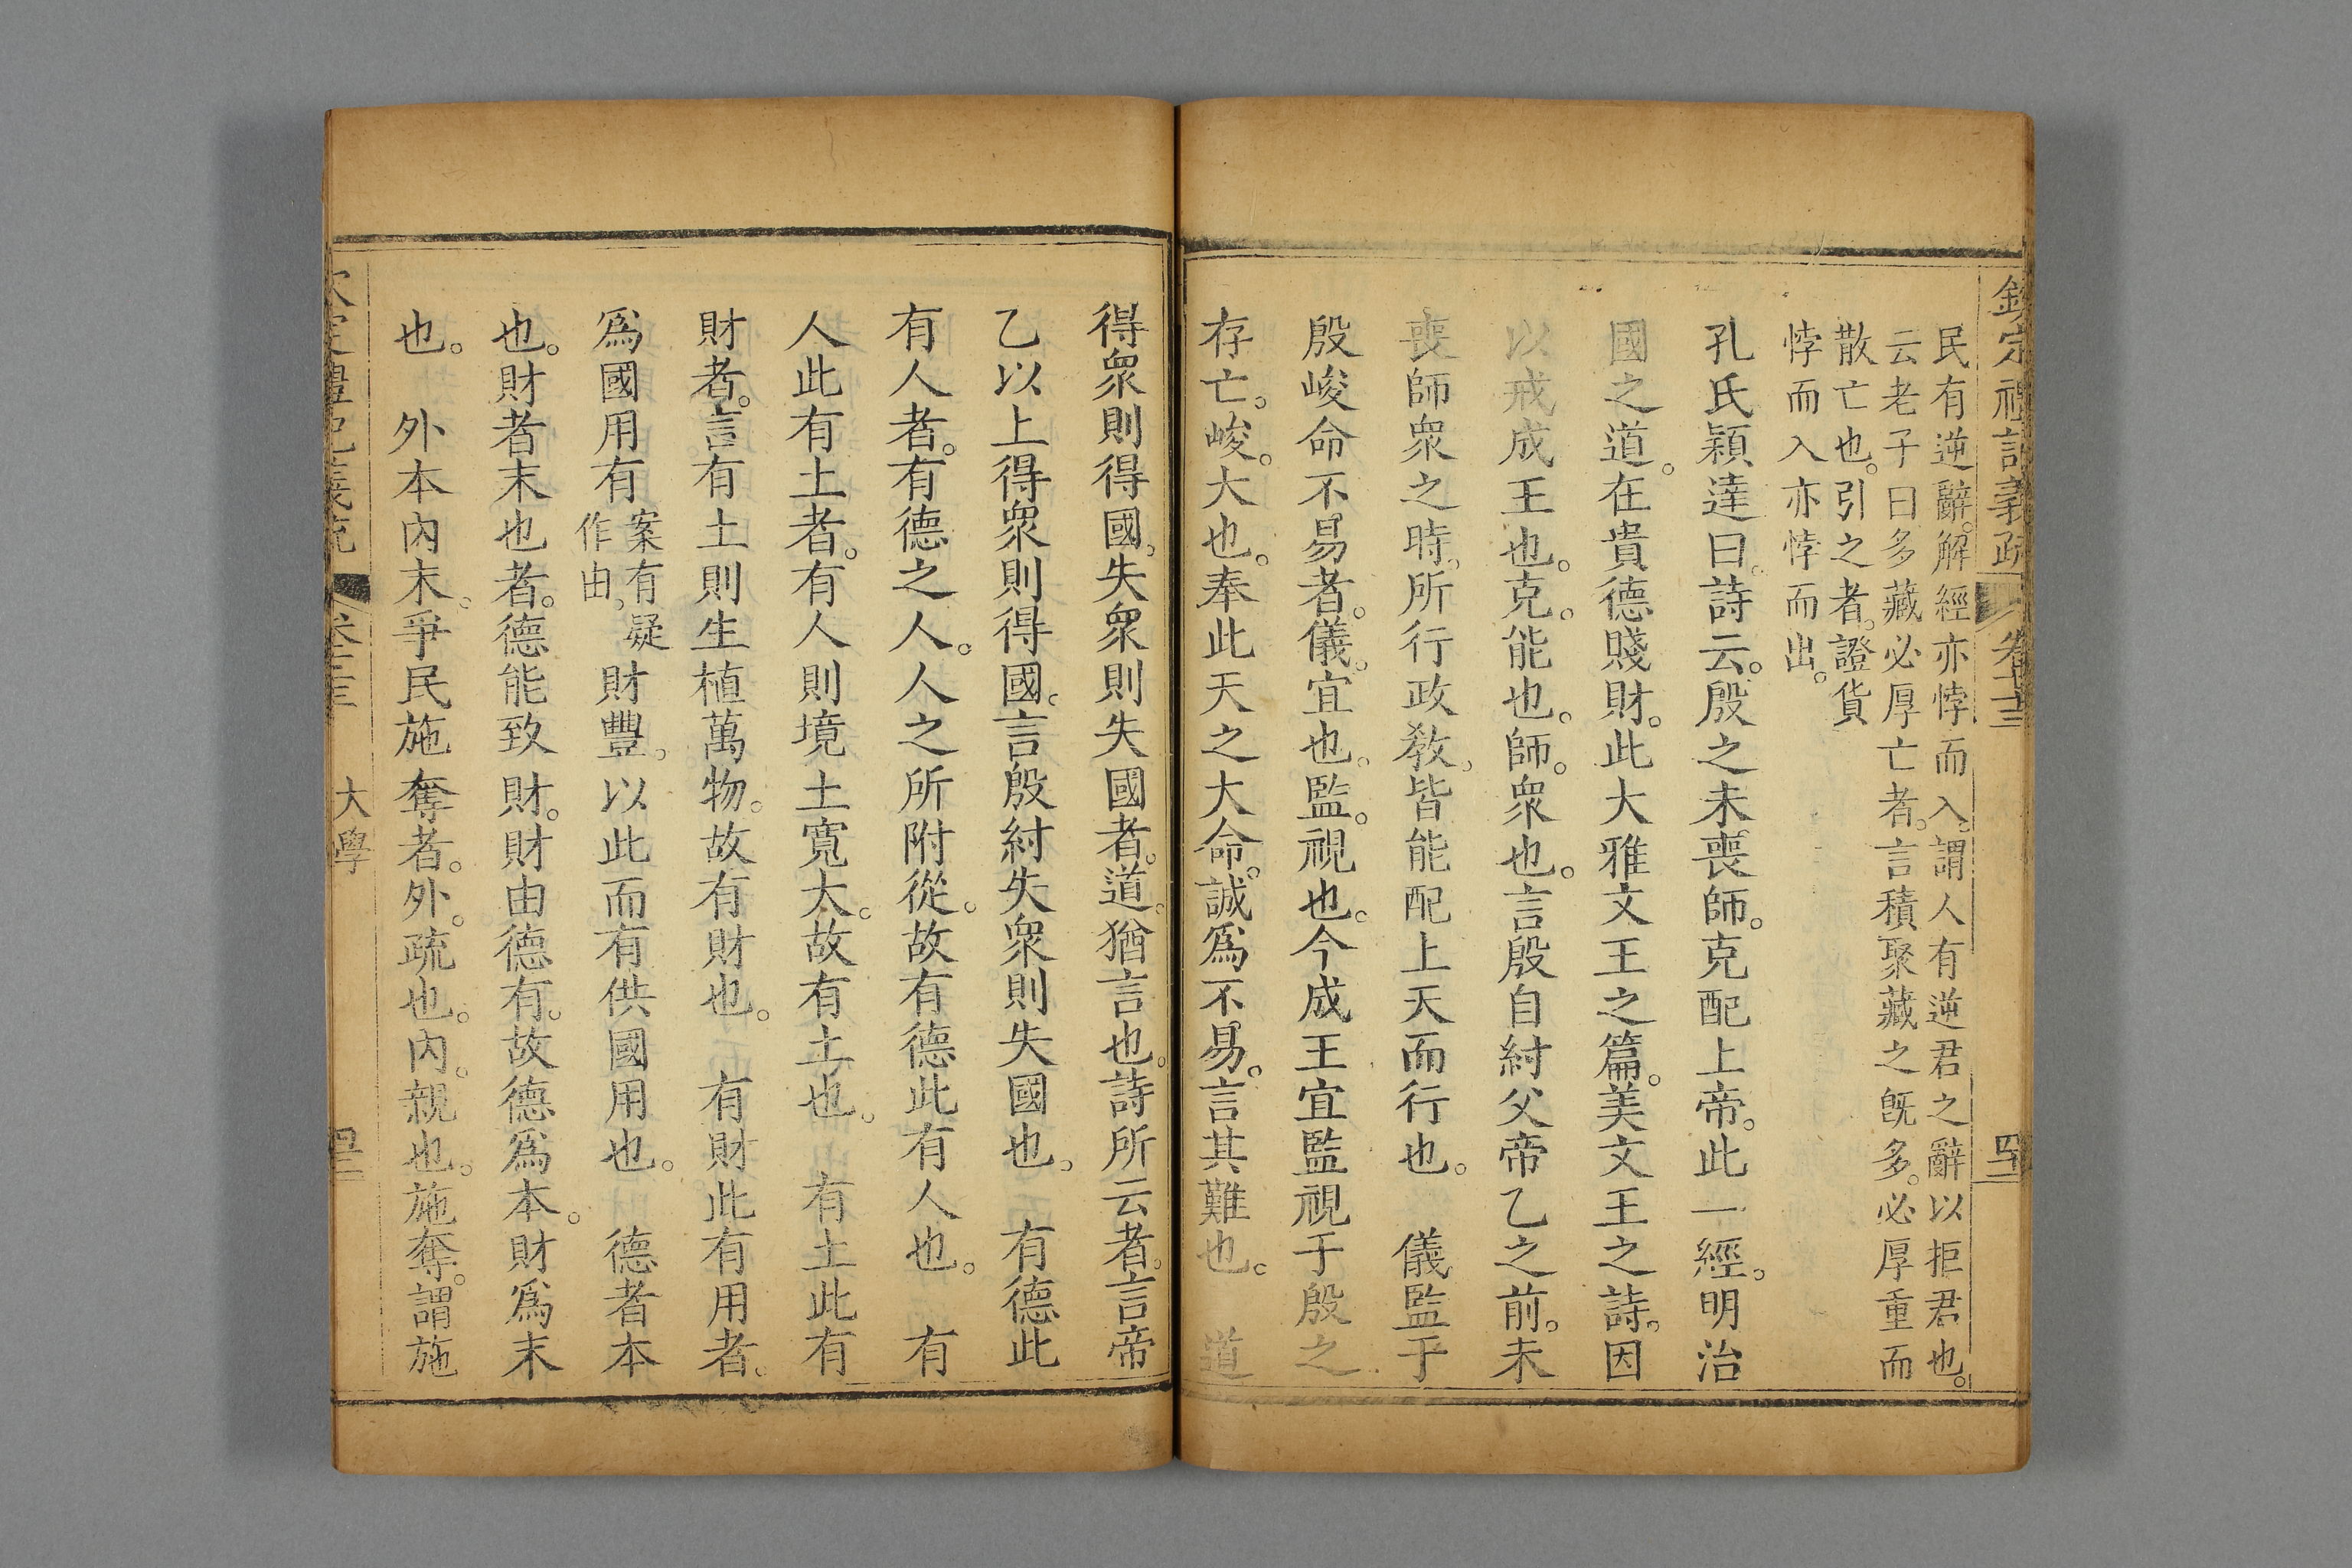 欽定禮記義疏 卷七十三 四三
民有逆辭。解經亦悖而入。謂人有逆君之辭以拒君也。
云老子曰多藏必厚亡者。言積聚藏之旣多。必厚重而
散亡也。引之者。證貨
悖而入亦悖而出。
孔氏穎達曰。詩云。殷之未喪師。克配上帝。此一經。明治
國之道。在貴德賤財。此大雅文王之篇。美文王之詩。因
以戒成王也。克。能也。師。衆也。言殷自紂父帝乙之前。未
喪師衆之時。所行政敎。皆能配上天而行也。 儀監于
殷峻命不易者。儀。宜也。監。視也。今成王宜監視于殷之
存亡。峻。大也。奉此天之大命。誠爲不易。言其難也。 道
得衆則得國。失衆則失國者。道。猶言也。詩所云者。言帝
乙以上得衆則得國。言殷紂失衆則失國也。 有德此
有人者。有德之人。人之所附從。故有德此有人也。 有
人此有土者。有人則境土寬大。故有土也。 有土此有
財者。言有土則生植萬物。故有財也。 有財此有用者。
爲國用有案有疑作由。財豐。以此而有供國用也。 德者本
也。財者末也者。德能致財。財由德有。故德爲本。財爲末
也。 外本內末。爭民施奪者。外。疏也。內。親也。施奪。謂施
大學